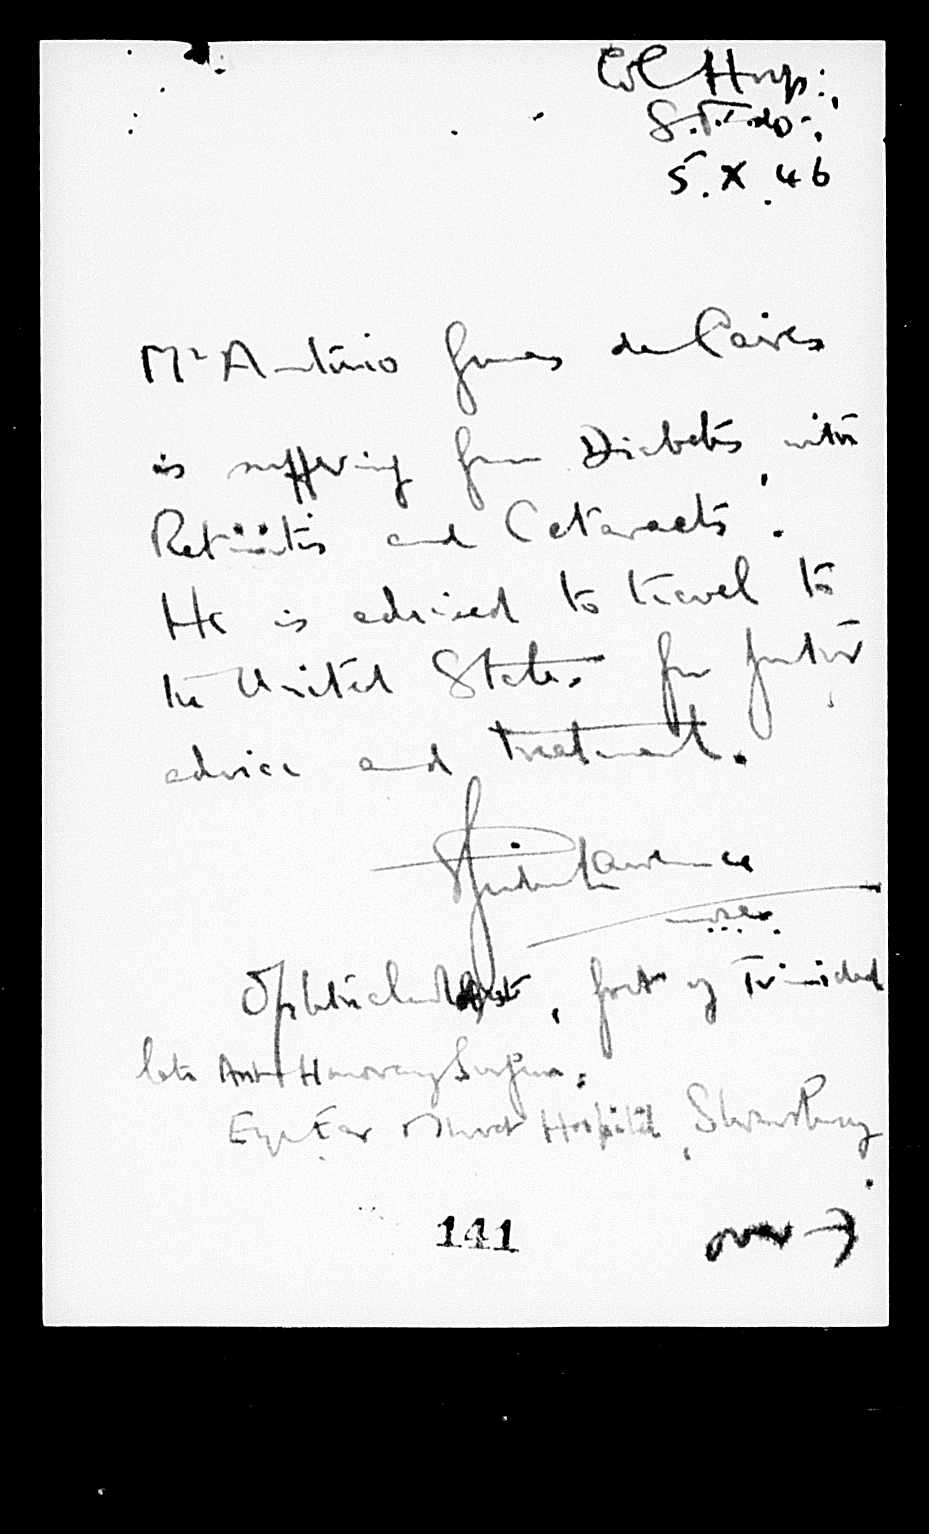 Col Hosp:,
S. F. do.,
5.X.46
Mr António Gomes de Paires
is suffering from Diabetes, with
Retinitis and Cataracts.
He is advised to travel to
the United States for further
advice and treatment.
Lawrence
Ophthalmologist, Govt of Trinidad
late Asst Honorary Surgeon,
Eye Ear & Throat Hospital, Shrewsbury.
141
over →